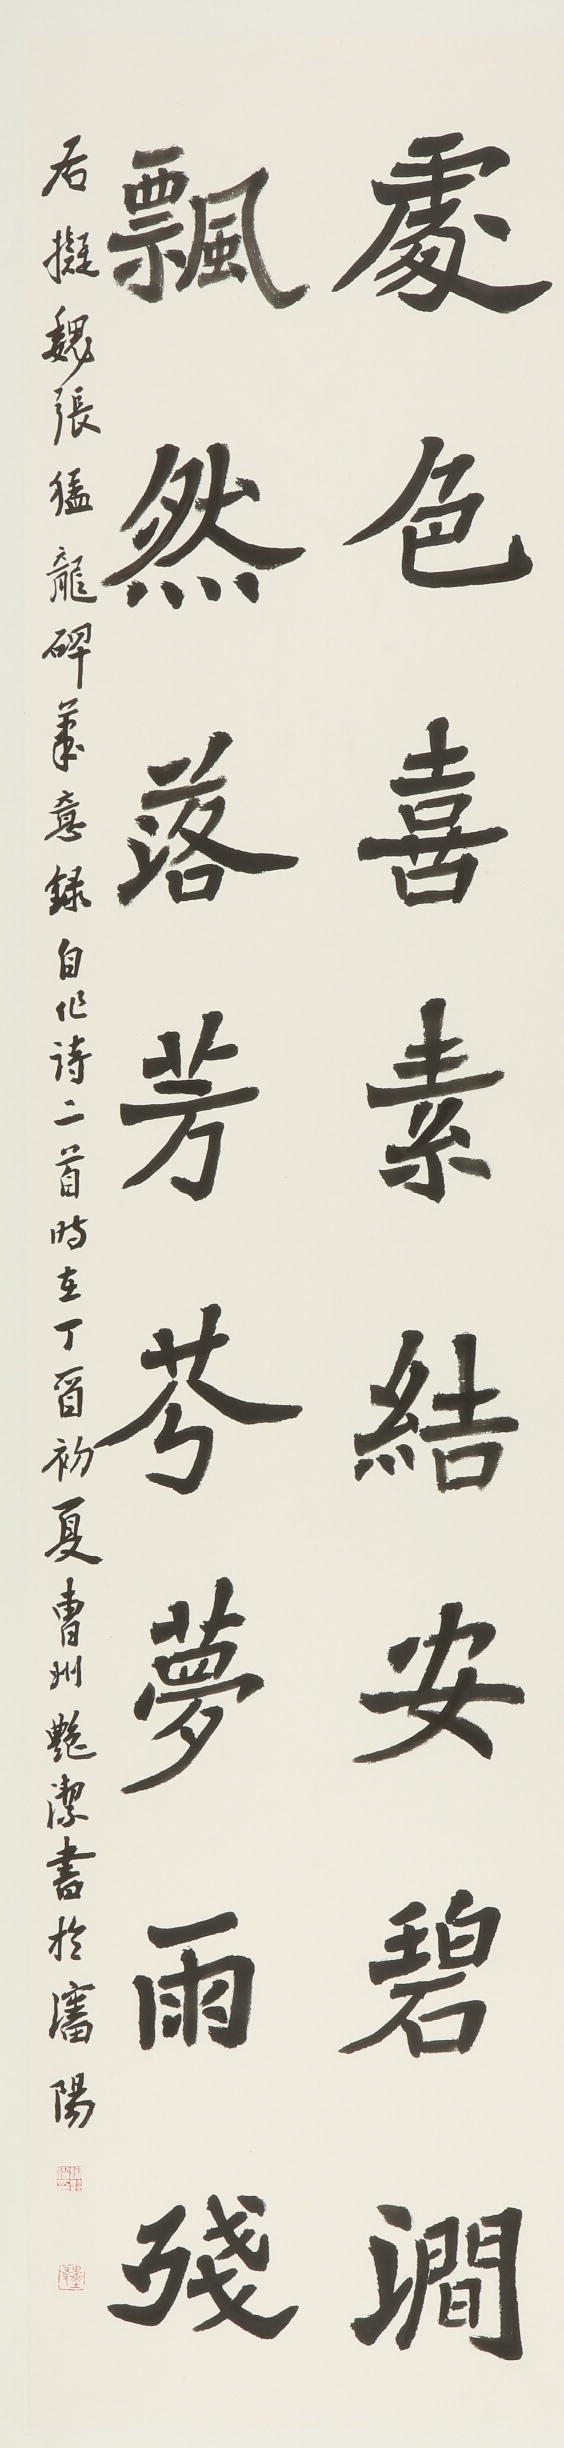 處色喜素結安碧澗
飄然落芳芩夢雨殘
右擬魏張猛龍碑筆意錄自作詩二首時在丁酉初夏曹州艷潔書於瀋陽